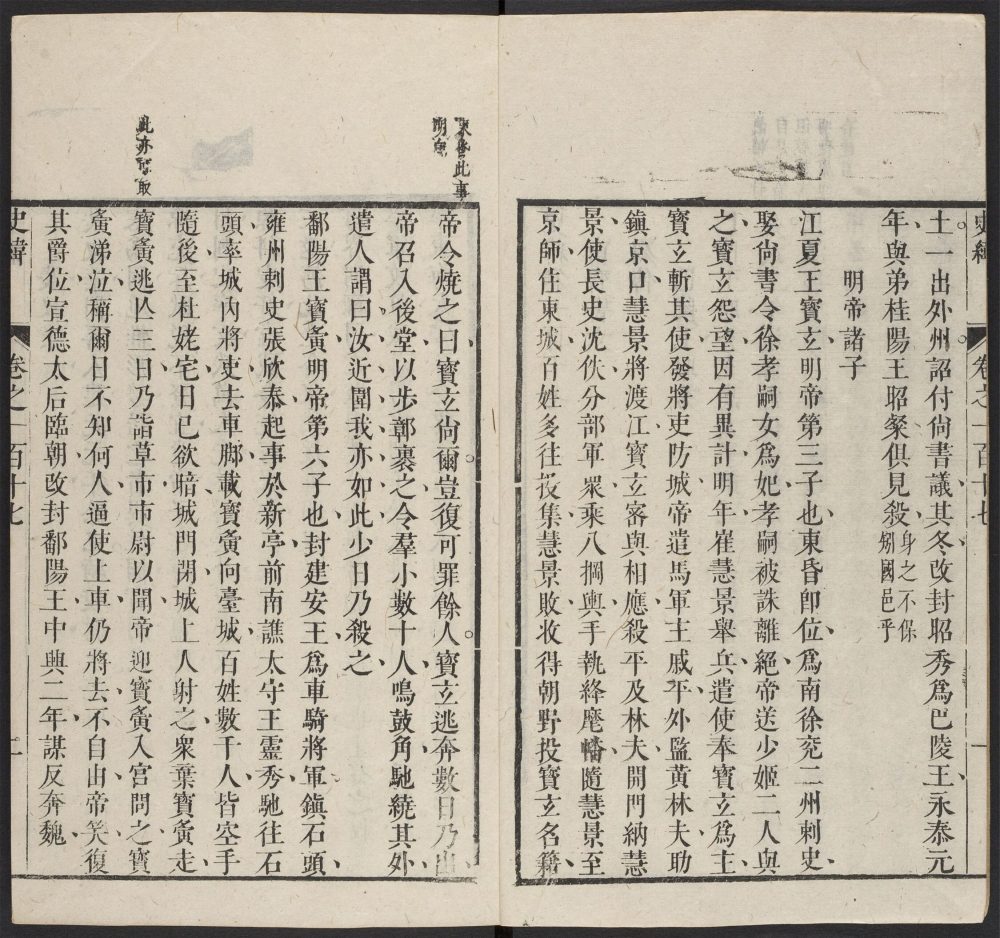 史緯
卷之一百十七
一
土一出外州詔付尙書議其冬改封昭秀爲巴陵王永泰元
年與弟桂陽王昭粲俱見殺身之不保
矧國邑乎
明帝諸子
江夏王寶玄明帝第三子也東昏卽位爲南徐兗二州刺史
娶尙書令徐孝嗣女爲妃孝嗣被誅離絕帝送少姬二人與
之寶玄怨望因有異計明年崔慧景舉兵遣使奉寶玄爲主
寶玄斬其使發將吏防城帝遣馬軍主戚平外監黃林夫助
鎮京口慧景將渡江寶玄密與相應殺平及林夫開門納慧
景使長史沈佚分部軍眾乘八掆輿手執絳麾幡隨慧景至
京師住東城百姓多往投集慧景敗收得朝野投寶玄名籍
東昏此事
明白
帝令燒之曰寶玄尙爾豈復可罪餘人寶玄逃奔數日乃出
帝召入後堂以步鄣裹之令羣小數十人鳴鼓角馳繞其外
遣人謂曰汝近圍我亦如此少日乃殺之
鄱陽王寶夤明帝第六子也封建安王爲車騎將軍鎮石頭
雍州刺史張欣泰起事於新亭前南譙太守王靈秀馳往石
頭率城內將吏去車脚載寶夤向臺城百姓數千人皆空手
隨後至杜姥宅日已欲暗城門閉城上人射之眾棄寶夤走
此亦可取
寶夤逃亾三日乃詣草市市尉以聞帝迎寶夤入宮問之寶
夤涕泣稱爾日不知何人逼使上車仍將去不自由帝笑復
其爵位宣德太后臨朝改封鄱陽王中興二年謀反奔魏
史緯
卷之一百十七
二